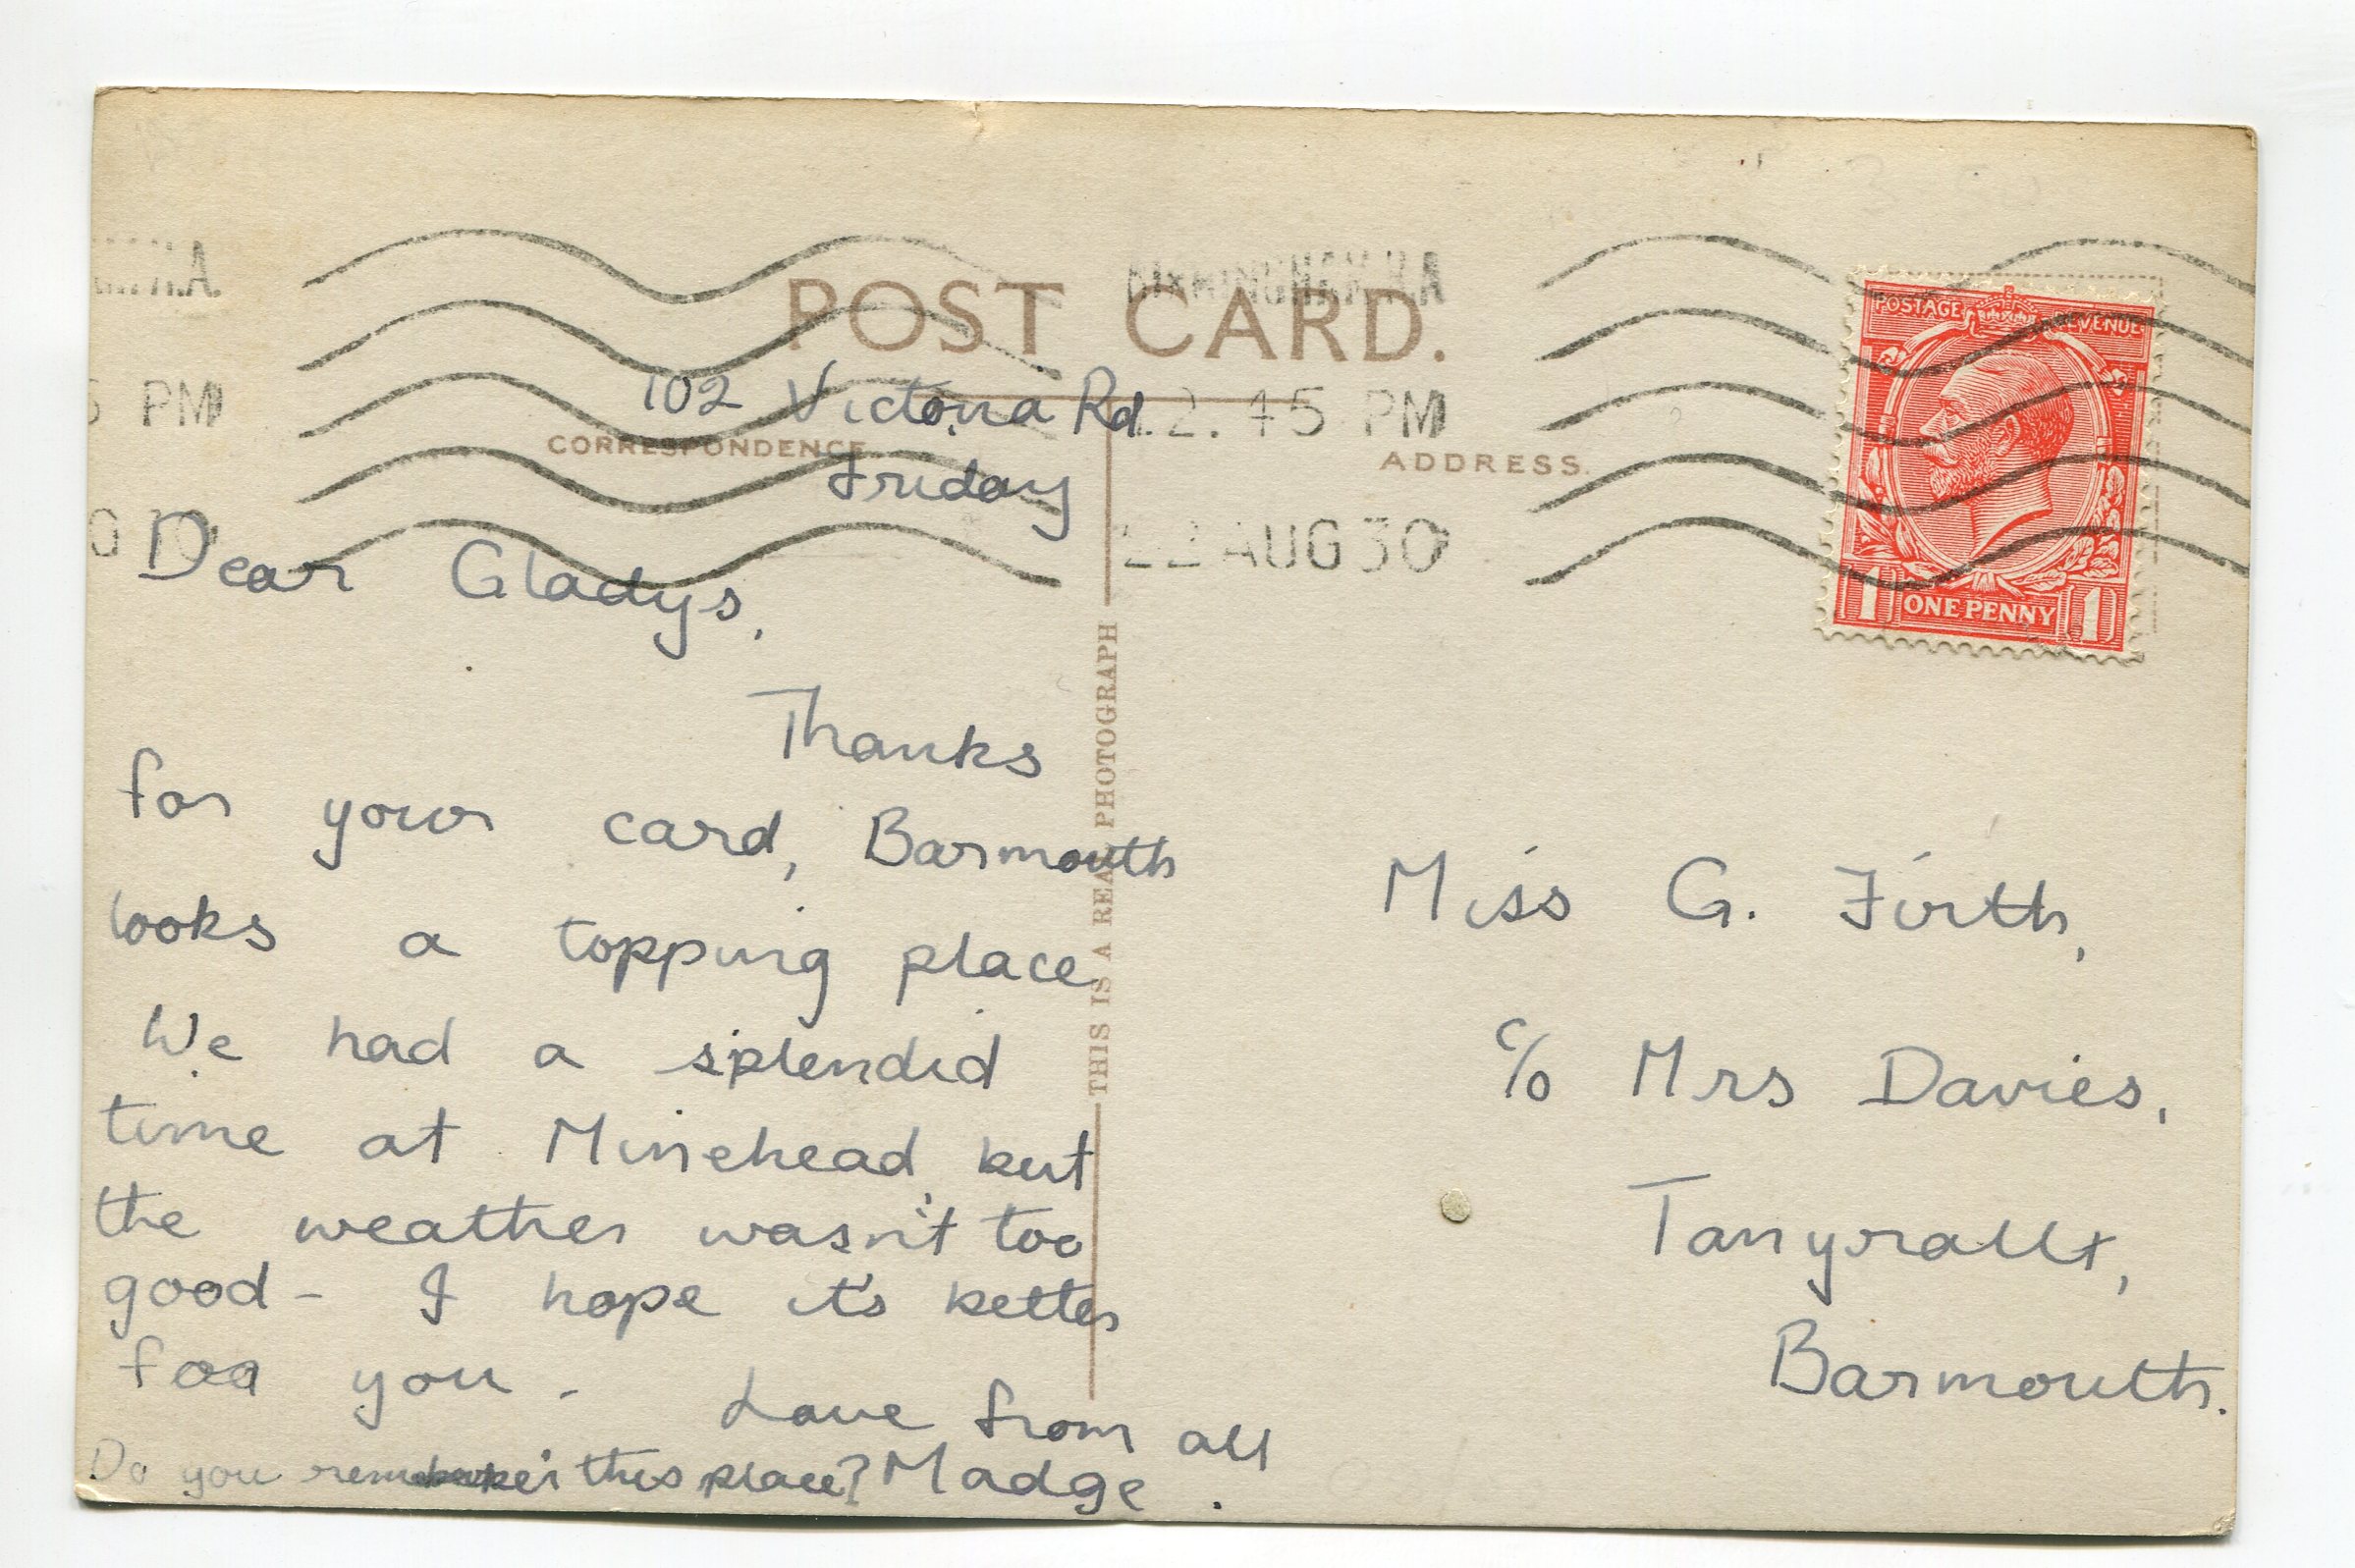 POST CARD.
BIRMINGHAM.
12.45 PM
22 AUG 30
PM
CORRESPONDENCE
ADDRESS.
POSTAGE REVENUE
1 ONE PENNY 1
THIS IS A REAL PHOTOGRAPH
102 Victoria Rd
Friday
Dear Gladys,
Thanks
for your card, Barmouth
looks a topping place
We had a splendid
time at Minehead but
the weather wasn't too
good - I hope it's better
for you.
Love from all
Do you remember this place? Madge.
Miss G. Firth,
c/o Mrs Davies,
Tanyrallt,
Barmouth.